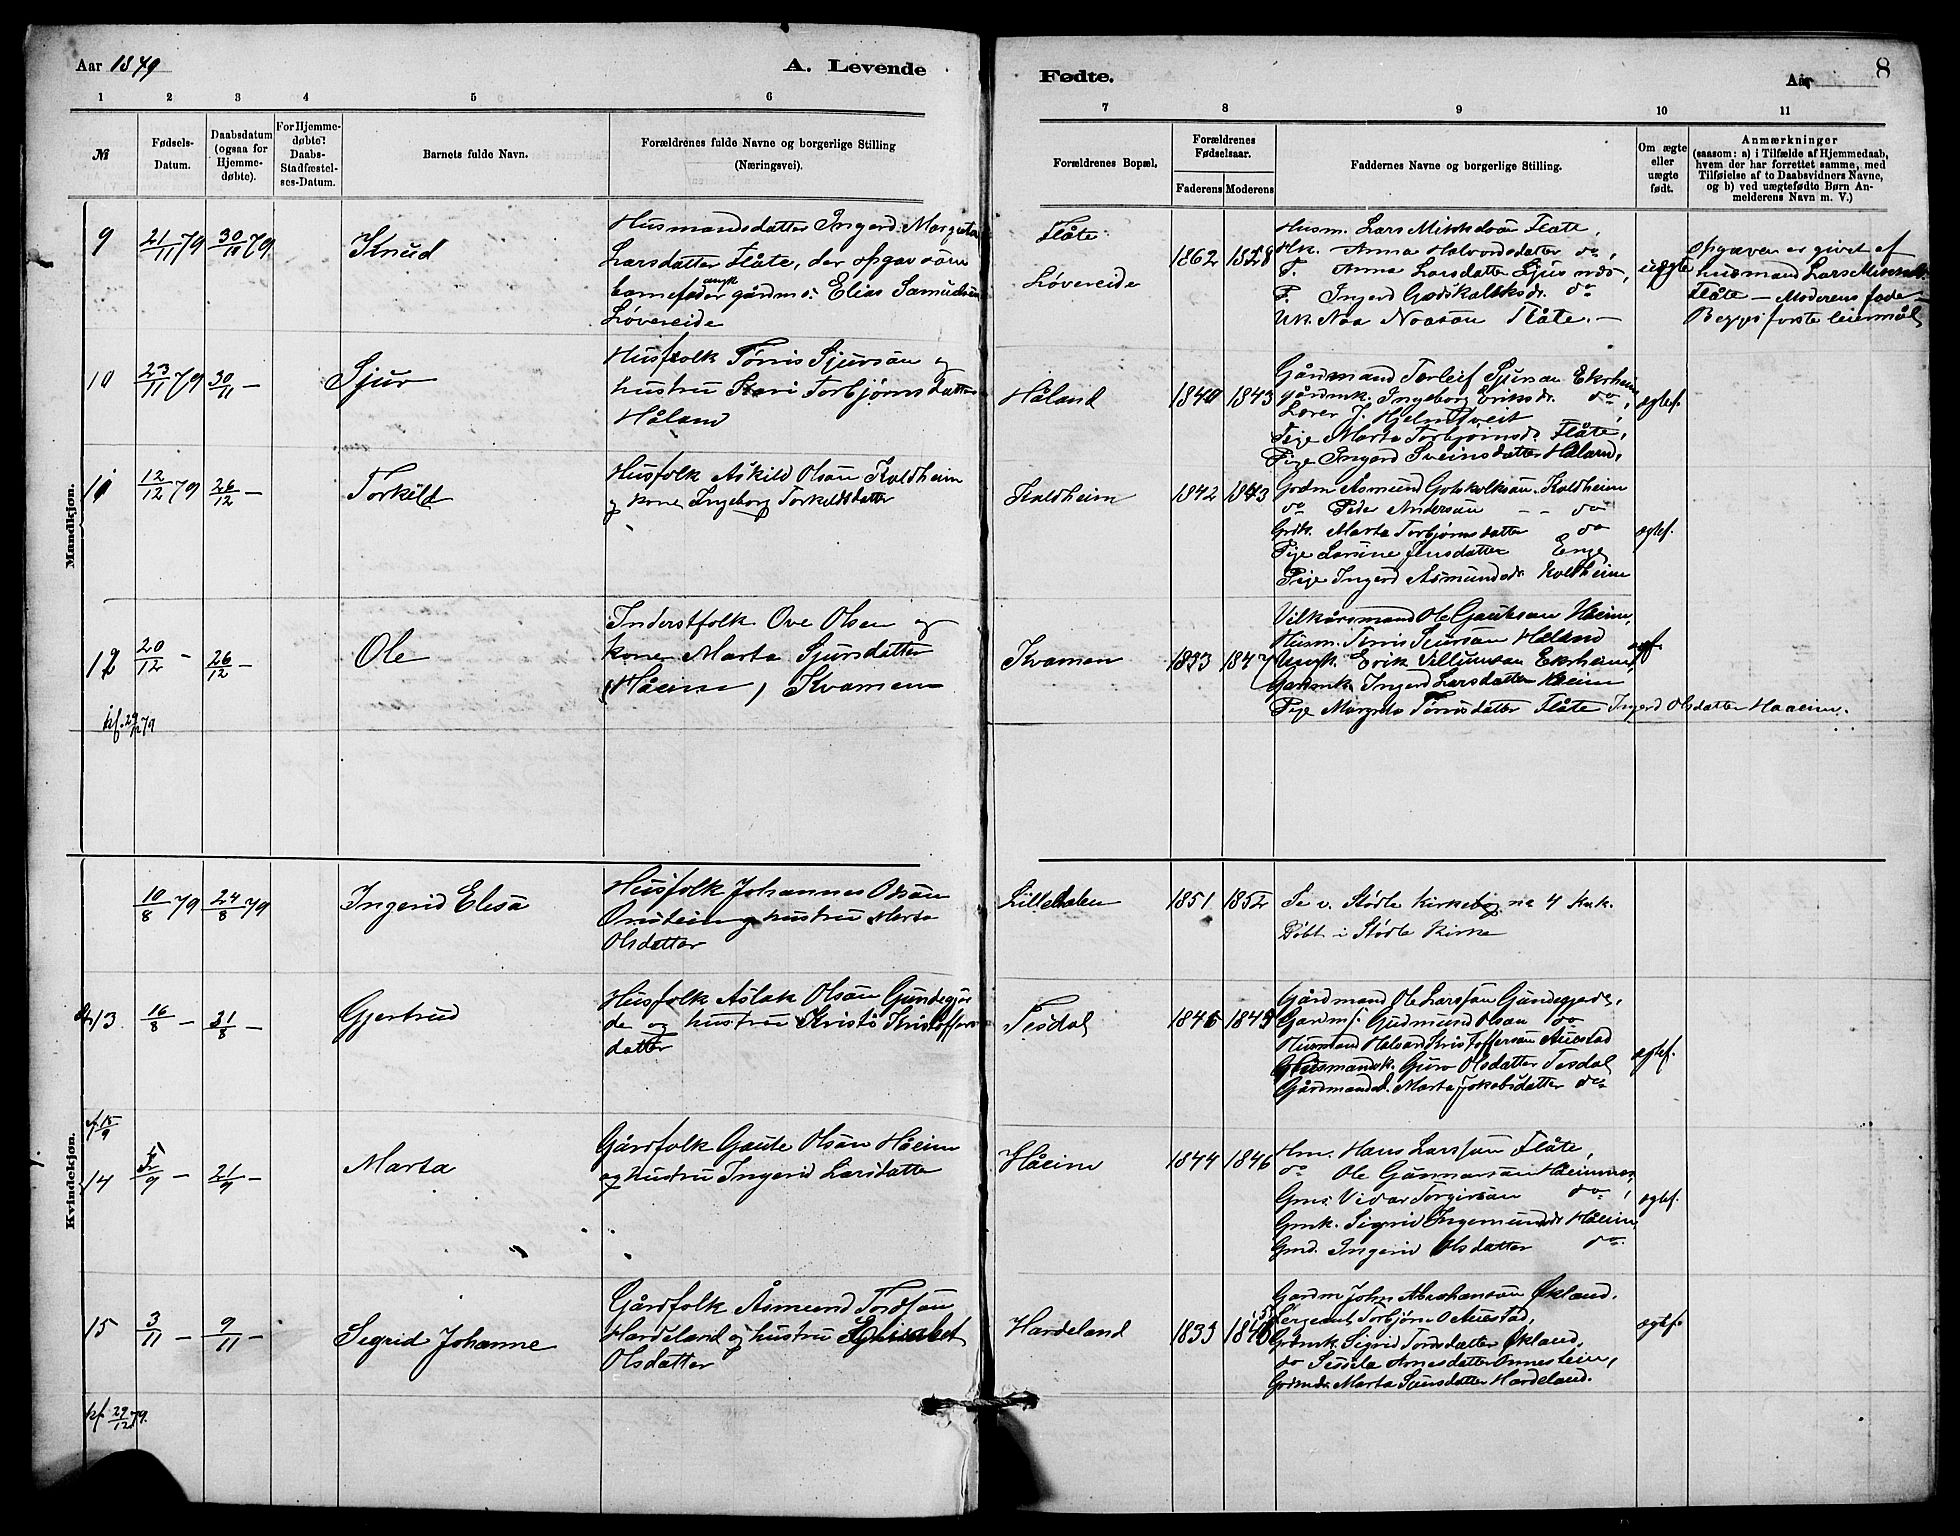 Aar 1879
A. Levende
Fødte.
Aar
8
1 2 3 4 5 6 7 8 9 10 11
№
Fødsels-
Datum.
Daabsdatum
(ogsaa for
Hjemme-
døbte).
For Hjemme-
døbte:
Daabs-
Stadfæstel-
ses-Datum.
Barnets fulde Navn.
Forældrenes fulde Navne og borgerlige Stilling
(Næringsvei).
Forældrenes Bopæl.
Forældrenes
Fødselsaar.
Faderens Moderens
Faddernes Navne og borgerlige Stilling.
Om ægte
eller
uægte
født.
Anmærkninger
(saasom: a) i Tilfælde af Hjemmedaab,
hvem der har forrettet samme, med
Tilføielse af to Daabsvidners Navne,
og b) ved uægtefødte Børn An-
melderens Navn m. V.)
Mandkjøn.
9 21/11 79 30/11 79 Knud
Husmandsdatter Ingerd Margreta
Larsdatter Flåte, der opgav som
barnefader ungk gårdms. Elias Samuelsen
Løvereide
Flåte
Løvereide
1862 1828
Husm. Lars Mikkelsøn Flåte,
Hk. Anna Halvorsdatter do,
P. Anna Larsdatter
P. Ingerd Godskalksdr. do
Uk. Noa Noasøn Flåte. –
uægte
Opgaven er givet af
husmand Lars Mikkels.
Flåte – Moderens fader –
Begges første leiermål
10 23/11 79 30/11 – Sjur
Husfolk Tørris Sjursøn og
hustru Kari Torbjørnsdatter
Håland
Håland 1840 1843
Gårdmand Torleif Sjursøn Ekrheim
gårdmk. Ingeborg Eriksdr. do,
Lærer J. Hjelmtveit
Pige Marta Torbjørnsdr. Flåte,
Pige Ingerd Sveinsdatter Håland,
ægtef.
11 12/12 79 26/12 – Torkild
Husfolk Askild Olsøn Koldheim
og kone Ingeborg Torkildsdatter
Koldheim 1842 1843
Grdm Asmund Gotskalksøn Koldheim
do Peder Andersøn – – do
Grdk. Marta Torbjørnsdatter do
Pige Larine Jensdatter Enge
Pige Ingerd Asmundsdr Koldheim
ægtef.
12 20/12 – 26/12 – Ole
Inderstfolk Ove Olsen og
kone Marta Sjursdatter
(Håeim) Kvamen
Kvamen 1853 1847
Vilkårsmand Ole Gautesøn Håeim,
Husm. Tørris Sjursøn Håland
Ungk. Erik Villumsøn Ekrheim,
Gårdmk. Ingerd Larsdatter Håeim
Pige Margreta Tørrisdatter Flåte Ingerd Olsdatter Haaeim.
ægtf.
kf. 29/12 79
Kvindekjøn.
10/8 79 24/8 79 Ingerid Elisa
Husfolk Johannes Odsøn
Onstein og hustru Marta
Olsdatter
Lilledalen 1851 1852
Se v. Stødle kirkebog no 4 Kvk.
Døbt i Stødle Kirke
13 16/8 – 31/8 – Gjertrud
Husfolk Aslak Olsøn Gundegjer
de og hustru Kristi Kristoffers
datter
Tesdal 1846 1845
Gårdmand Ole Larssøn Gundegjerde,
Gårdms. Gudmund Olsøn do
Husmand Halvard Kristoffersøn Austad
Husmandsk. Guro Olsdatter Tesdal
Gårdmandsd. Marta Jakobsdatter do
ægtef.
kf 15/9
14 5/9 – 21/9 – Marta
Gårdfolk Gaute Olsøn Håeim
og hustru Ingerid Larsdatter
Håeim 1844 1846
Hm. Hans Larssøn Flåte,
do Ole Gunnarsøn Håeimsnes,
Gms. Vidar Torgirsøn do,
Gmk. Sigrid Ingemundsdr Håeim
Gmd. Ingerid Olsdatter do.
ægtef.
15 3/11 – 9/11 – Sigrid Johanne
Gårdfolk Åsmund Tordsøn
Hardeland og hustru Elisabet
Olsdatter
Hardeland 1833
Gårdm John Abrahamsøn Økland.
Sergeant Torbjørn O Austad,
Grdmk. Sigrid Tordsdatter Økland,
do Sissela Arnesdatter Onnestein,
Grdmdr. Marta Sjursdatter Hardeland.
ægtef.
kf 29/12 79.